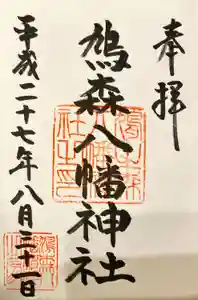 奉拝
鳩森八幡神社
平成二十七年八月三十一日